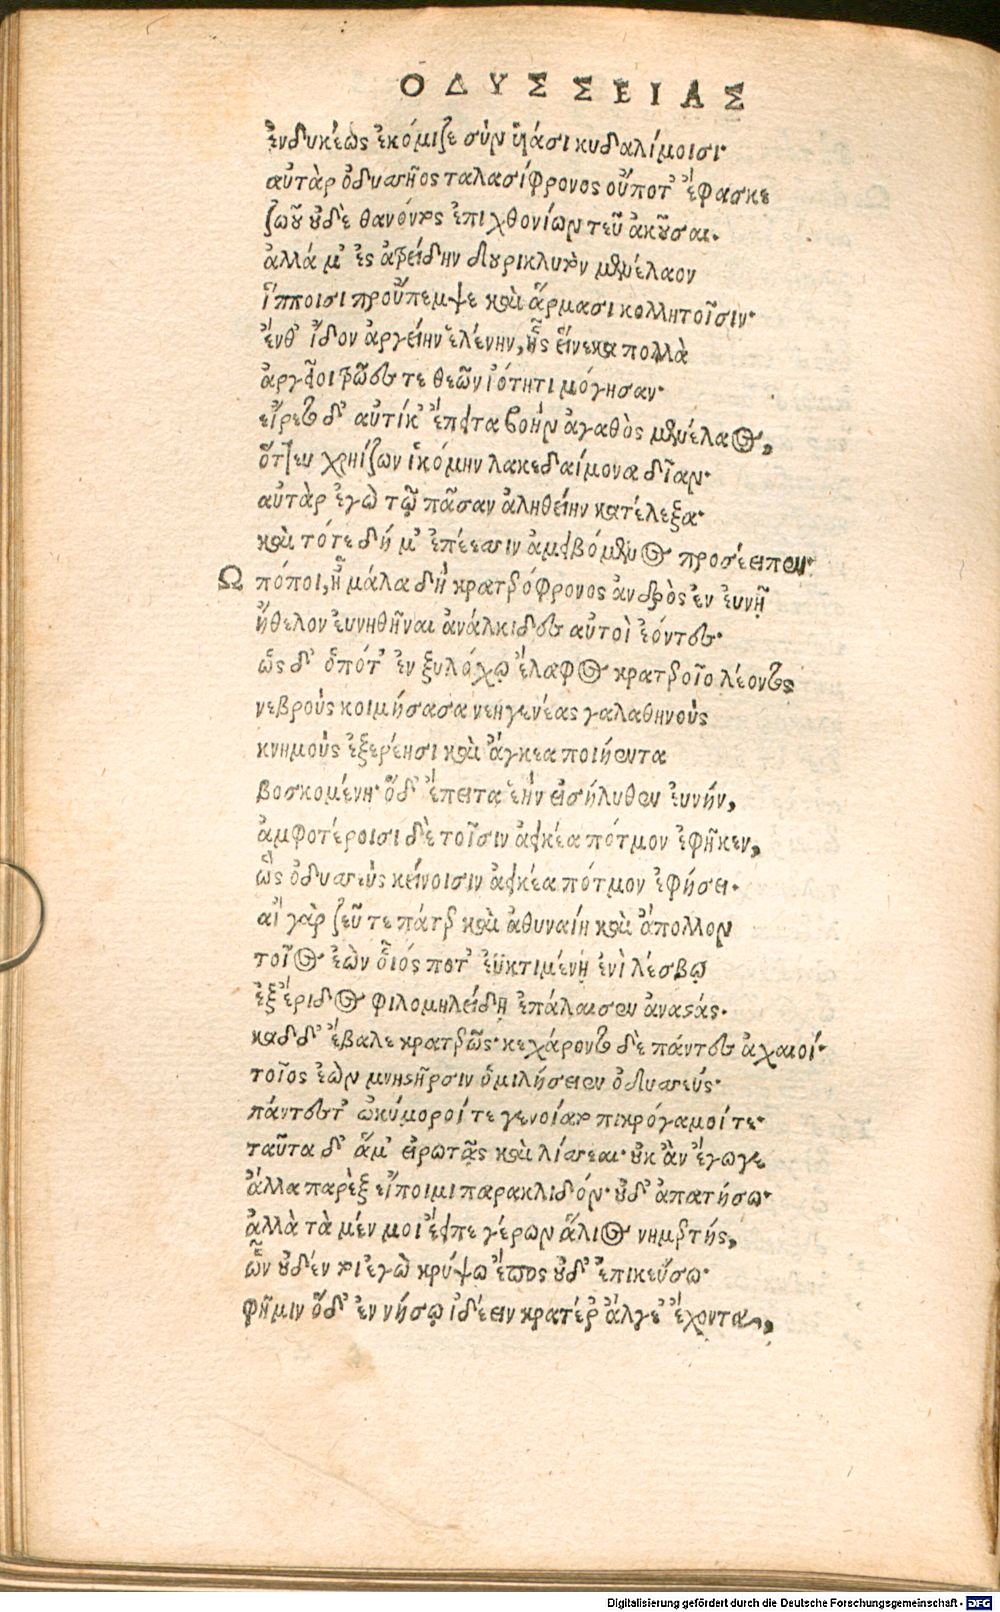 ΟΔΥΣΣΕΙΑΣ
ἐνδυκέως ἐκόμιζε σὺν ὑϊάσι κυδαλίμοισι·
αὐτὰρ ὀδυσσῆος ταλασίφρονος οὔποτ' ἔφασκε
ζωοῦ οὐδὲ θανόντος ἐπιχθονίων τεῦ ἀκοῦσαι.
ἀλλά μ' ἐς ἀτρείδην δουρικλυτὸν μενέλαον
ἵπποισι προὔπεμψε καὶ ἅρμασι κολλητοῖσιν·
ἔνθ' ἴδον ἀργείην ἑλένην, ἧς εἵνεκα πολλὰ
ἀργεῖοι τρῶές τε θεῶν ἰότητι μόγησαν·
εἴρετο δ' αὐτίκ' ἔπειτα βοὴν ἀγαθὸς μενέλαος,
ὅττευ χρηίζων ἱκόμην λακεδαίμονα δῖαν·
αὐτὰρ ἐγὼ τῷ πᾶσαν ἀληθείην κατέλεξα·
καὶ τότε δή μ' ἐπέεσσιν ἀμειβόμενος προσέειπεν·
Ω πόποι, ἦ μάλα δὴ κρατερόφρονος ἀνδρὸς ἐν εὐνῇ
ἤθελον εὐνηθῆναι ἀνάλκιδες αὐτοὶ ἐόντες·
ὡς δ' ὁπότ' ἐν ξυλόχῳ ἔλαφος κρατεροῖο λέοντος
νεβροὺς κοιμήσασα νεηγενέας γαλαθηνοὺς
κνημοὺς ἐξερέησι καὶ ἄγκεα ποιήεντα
βοσκομένη· ὅδ' ἔπειτα ἑὴν εἰσήλυθεν εὐνήν,
ἀμφοτέροισι δὲ τοῖσιν ἀεικέα πότμον ἐφῆκεν,
ὣς ὀδυσσεὺς κείνοισιν ἀεικέα πότμον ἐφήσει.
αἲ γὰρ ζεῦ τε πάτερ καὶ ἀθηναίη καὶ ἄπολλον
τοῖος ἐὼν οἷός ποτ' ἐϋκτιμένῃ ἐνὶ λέσβῳ
ἐξ ἔριδος φιλομηλείδῃ ἐπάλαισεν ἀναστάς.
καδ δ' ἔβαλε κρατερῶς· κεχάροντο δὲ πάντες ἀχαιοί·
τοῖος ἐὼν μνηστῆρσιν ὁμιλήσειεν ὀδυσσεύς·
πάντες τ' ὠκύμοροί τε γενοίατο πικρόγαμοί τε·
ταῦτα δ' ἅμ' εἰρωτᾷς καὶ λίσσεαι· οὐκ ἂν ἔγωγε
ἄλλα παρὲξ εἴποιμι παρακλιδόν· οὐδ' ἀπατήσω·
ἀλλὰ τὰ μέν μοι ἔειπε γέρων ἅλιος νημερτής,
ὧν οὐδέν τοι ἐγὼ κρύψω ἔπος οὐδ' ἐπικεύσω·
φῆ μιν ὅδ' ἐν νήσῳ ἰδέειν κρατέρ' ἄλγε' ἔχοντα,
Digitalisierung gefördert durch die Deutsche Forschungsgemeinschaft - DFG